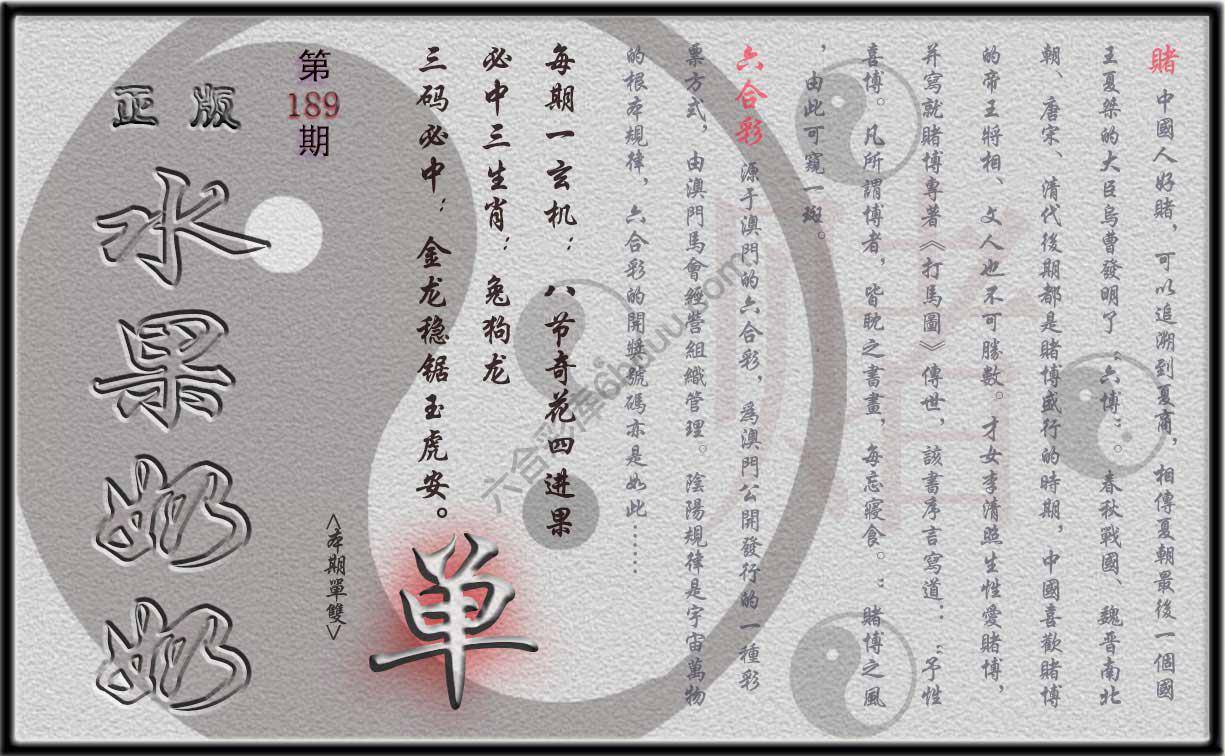 賭 中國人好賭，可以追溯到夏商，相傳夏朝最後一個國
王夏桀的大臣烏曹發明了“六博”。春秋戰國、魏晋南北
朝、唐宋、清代後期都是賭博盛行的時期，中國喜歡賭博
的帝王將相、文人也不可勝數。才女李清照生性愛賭博，
并寫就賭博專著《打馬圖》傳世，該書序言寫道：“予性
喜博。凡所謂博者，皆眈之書畫，每忘寢食。：賭博之風
，由此可窺一斑。
六合彩 源于澳門的六合彩，爲澳門公開發行的一種彩
票方式，由澳門馬會經營組織管理。陰陽規律是宇宙萬物
的根本規律，六合彩的開獎號碼亦是如此……
每期一玄机：八节奇花四进果
必中三生肖：兔狗龙
三码必中：金龙稳锯玉虎安。
单
<本期單雙>
第
189
期
正版
水果奶奶
賭
六合彩库6huuu.com